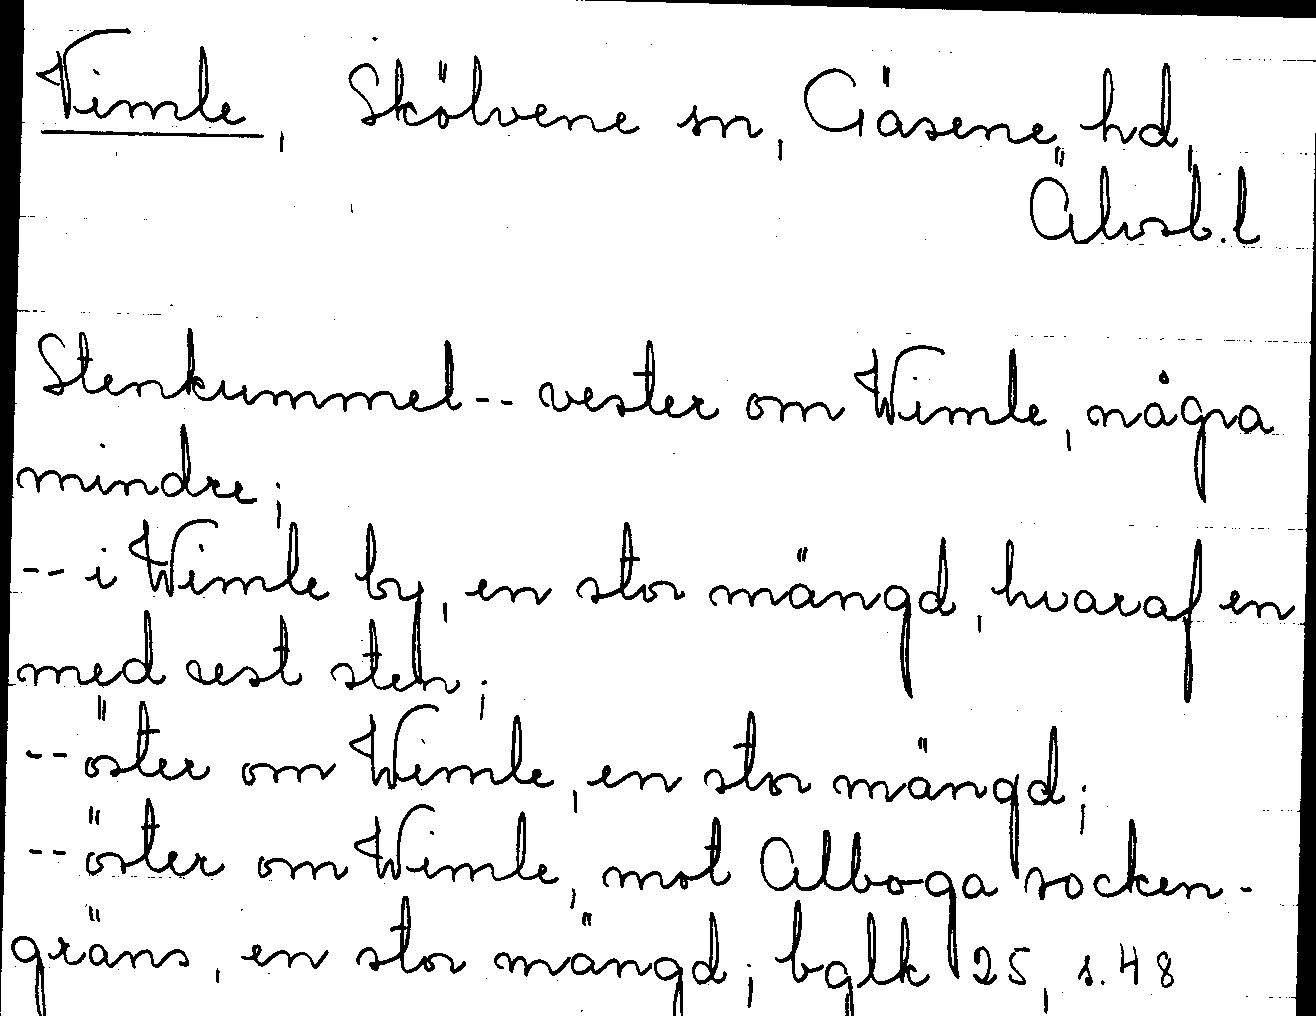 Vimle, Skölvene sn, Gäsene hd,
Älvsb.l
Stenkummel -- vester om Wimle, några
mindre;
-- i Wimle by, en stor mängd, hvaraf en
med rest sten;
-- öster om Wimle, en stor mängd;
-- öster om Wimle, mot Alboga socken-
gräns, en stor mängd; bglk 25, s. 48